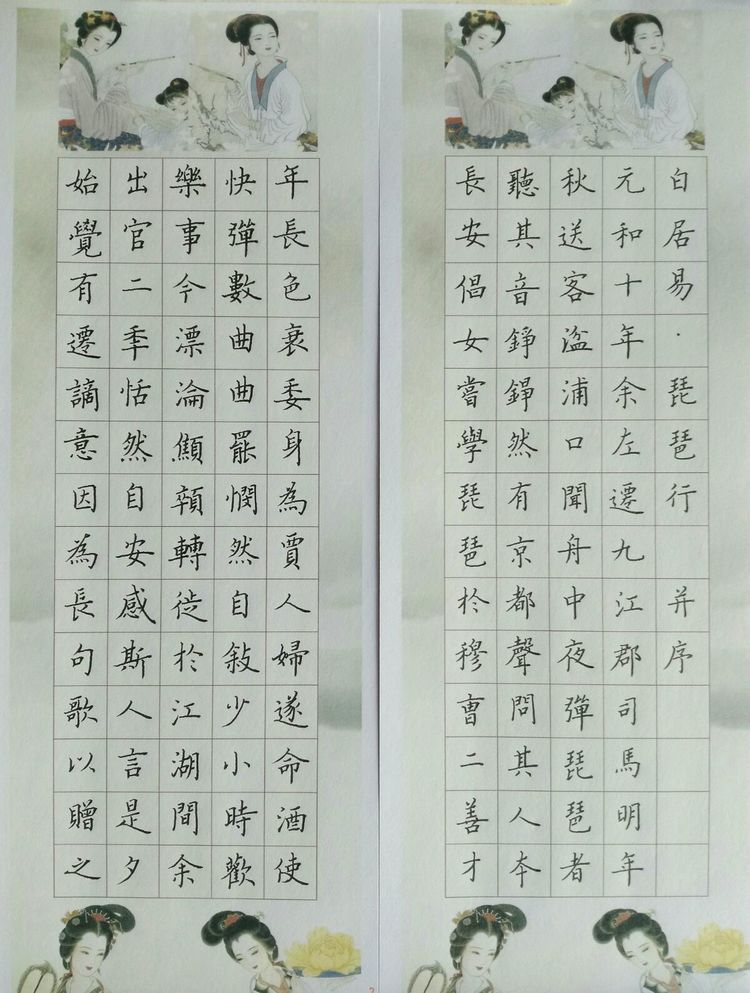 白居易·琵琶行 并序
元和十年余左遷九江郡司馬明年
秋送客湓浦口聞舟中夜彈琵琶者
聽其音錚錚然有京都聲問其人夲
長安倡女嘗學琵琶於穆曹二善才
年長色衰委身為賈人婦遂命酒使
快彈數曲曲罷憫然自敍少小時歡
樂事今漂淪顦顇轉徙於江湖間余
出官二秊恬然自安感斯人言是夕
始覺有遷謫意因為長句歌以贈之